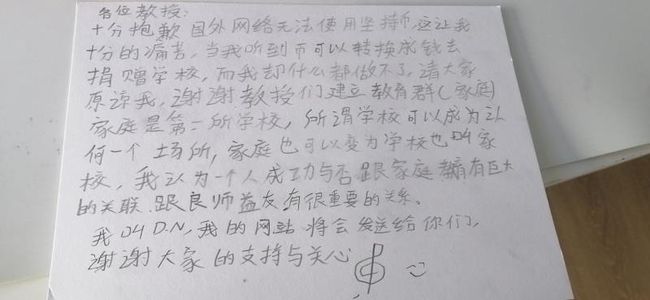 各位教授：
十分抱歉 国外网络无法使用坚持币，这让我
十分的痛苦，当我听到币可以转换成钱去
捐赠学校，而我却什么都做不了，请大家
原谅我，谢谢教授们建立教育群（家庭）
家庭是第一所学校，所谓学校可以成为认
何一个场所，家庭也可以变为学校也叫家
校，我认为一个人成功与否跟家庭教育有巨大
的关联 跟良师益友有很重要的关系。
我叫D.N，我的网站将会发送给你们，
谢谢大家的支持与关心